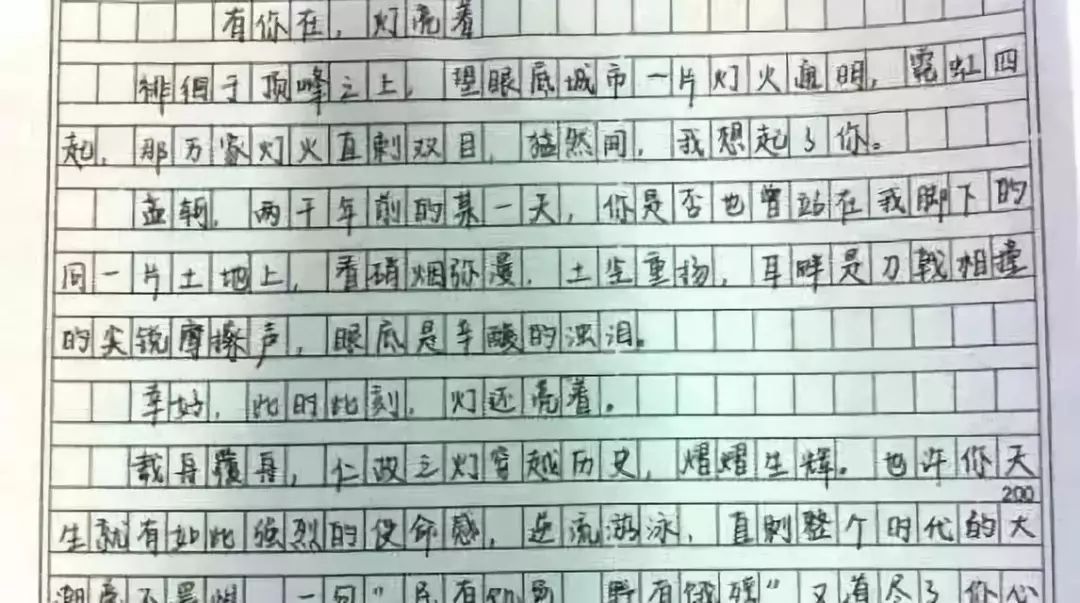 有你在，灯亮着
徘徊于顶峰之上，望眼底城市一片灯火通明，霓虹四
起，那万家灯火直刺双目，猛然间，我想起了你。
孟轲，两千年前的某一天，你是否也曾站在我脚下的
同一片土地上，看硝烟弥漫，土尘重扬，耳畔是刀戟相撞
的尖锐摩擦声，眼底是辛酸的浊泪。
幸好，此时此刻，灯还亮着。
载舟覆舟，仁政之灯穿越历史，熠熠生辉。也许你天
200
生就有如此强烈的使命感，逆流游泳，直刺整个时代的大
一句"民有饥色 野有饿殍"又道尽了你心